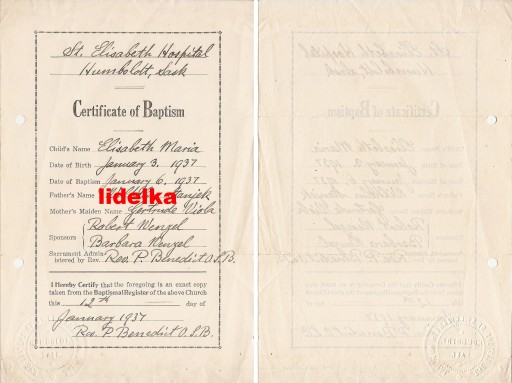 St. Elisabeth Hospital
Humboldt, Sask
Certificate of Baptism
Child's Name Elisabeth Maria
Date of Birth January 3, 1937
Date of Baptism January 6, 1937
lidelka
Father's Name Stanjek
Mother's Maiden Name Gertrude Viola
Robert Wenzel
Sponsors
Barbara Wenzel
Sacrament Admin-
istered by Rev. Rev. P. Benedict O.S.B.
I Hereby Certify that the foregoing is an exact copy
taken from the Baptismal Register of the above Church
this 12th day of
January 1937
Rev. P. Benedict O.S.B.